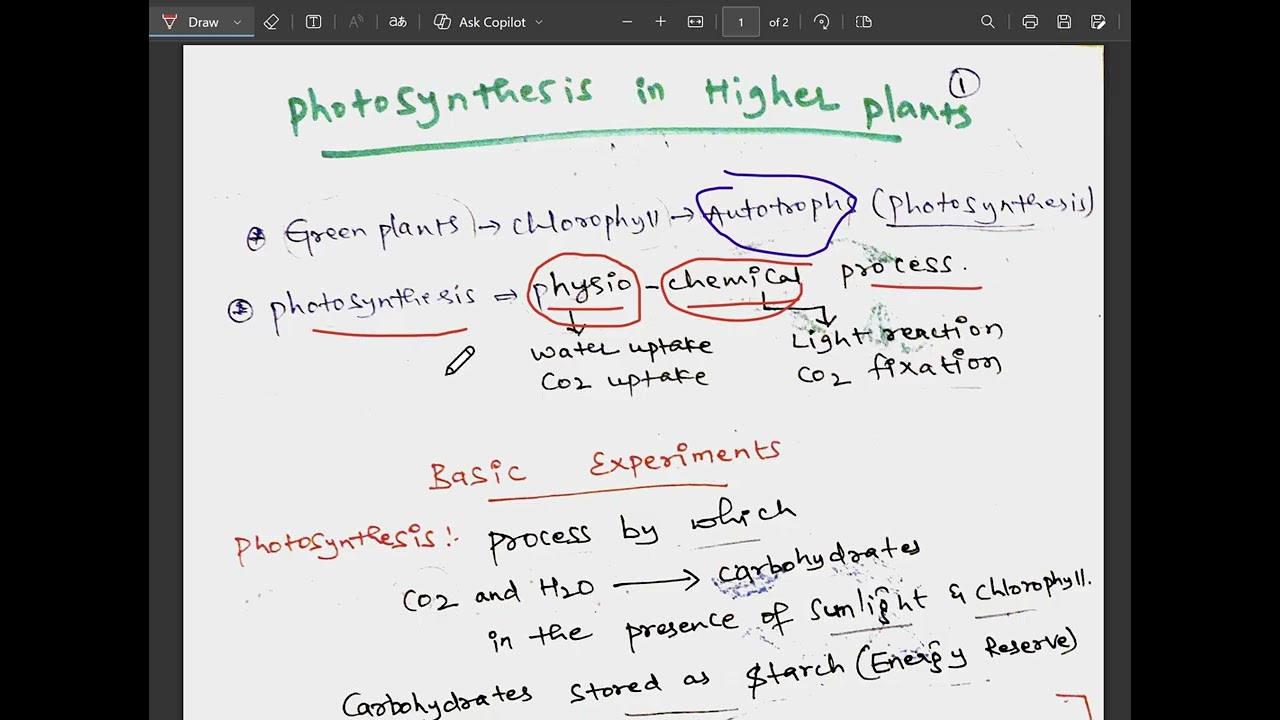 Draw
aあ
Ask Copilot
1 of 2
Photosynthesis in Higher plants
1
Green plants → chlorophyll → Autotrophs (photosynthesis)
photosynthesis ⇒ physio - chemical process.
water uptake
CO2 uptake
Light reaction
CO2 fixation
Basic Experiments
Photosynthesis :- process by which
CO2 and H2O → carbohydrates
in the presence of sunlight & chlorophyll.
Carbohydrates stored as starch (Energy Reserve)